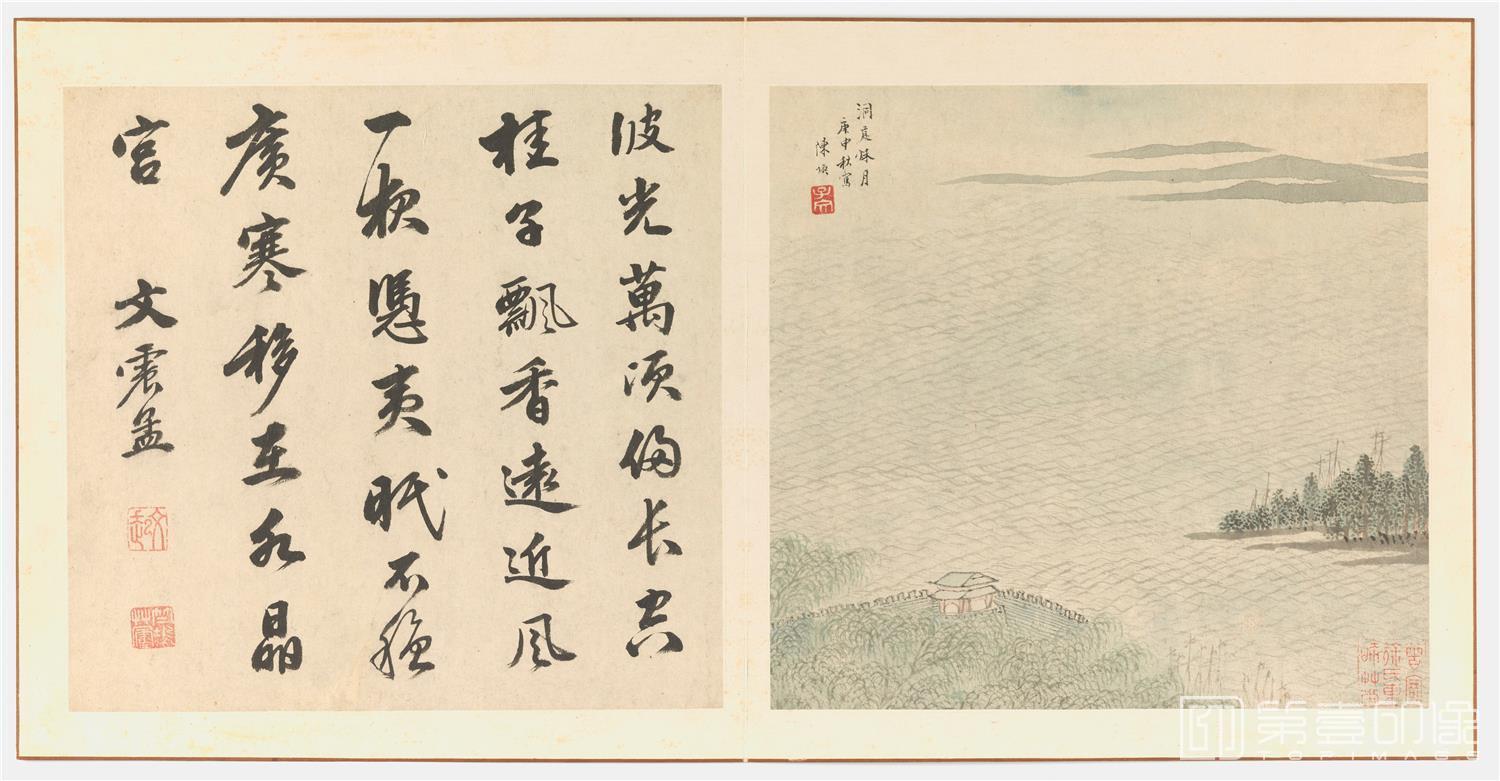 洞庭秌月
庚申秋寫
陳煥
子文
波光萬頃徧長空
桂子飄香遠近風
一夜憑夷眠不穩
廣寒移在水晶
宮 文震孟
文起
第壹印像
TOPIMAGE